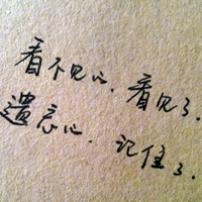 看不见的，看见了．
遗忘的．记住了．